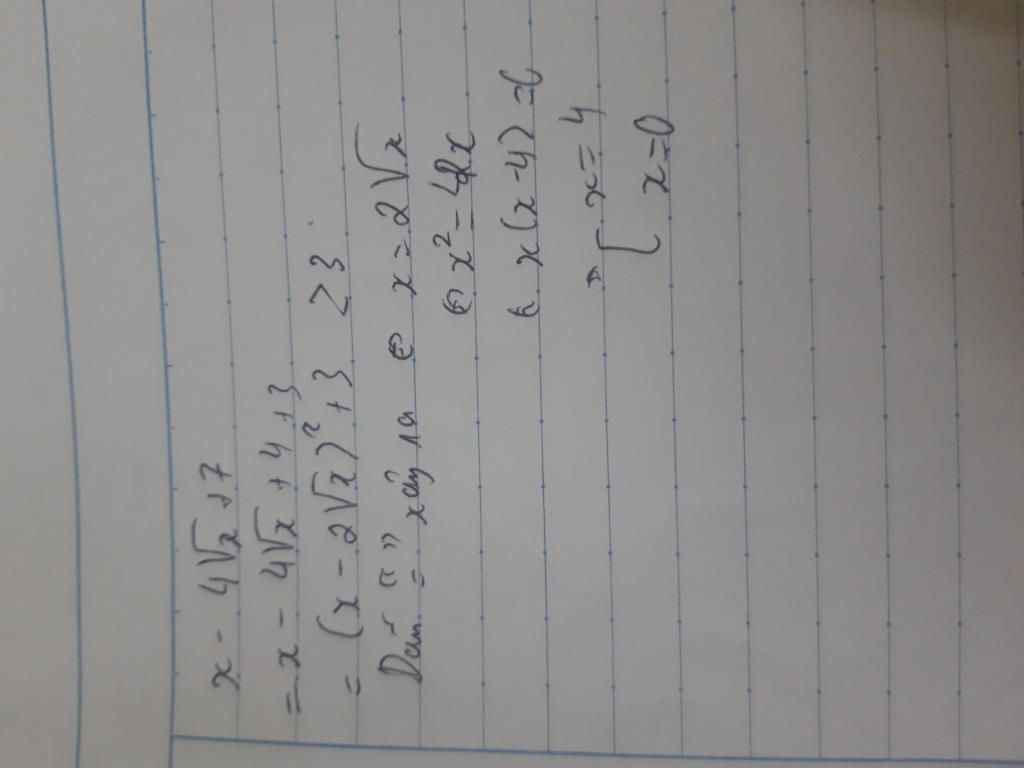 x - 4√x + 7
= x - 4√x + 4 + 3
= (x - 2√x)² + 3 ≥ 3
Dấu "=" xảy ra ⇔ x = 2√x
⇔ x² - 4x
x(x - 4) = 0
x = 4
x = 0